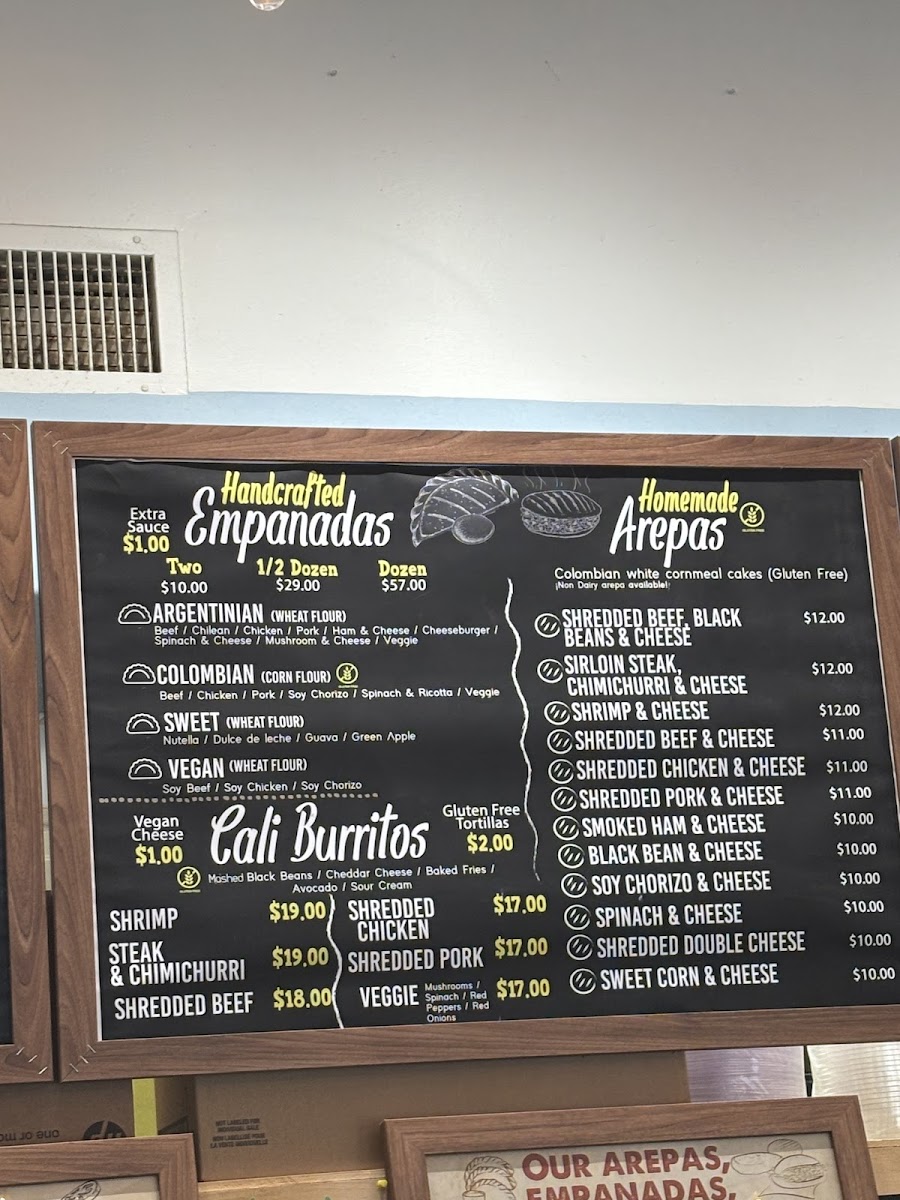 Handcrafted
Empanadas
Extra
Sauce
$1.00
Two
$10.00
1/2 Dozen
$29.00
Dozen
$57.00
ARGENTINIAN (WHEAT FLOUR)
Beef / Chilean / Chicken / Pork / Ham & Cheese / Cheeseburger /
Spinach & Cheese / Mushroom & Cheese / Veggie
COLOMBIAN (CORN FLOUR)
GLUTEN FREE
Beef / Chicken / Pork / Soy Chorizo / Spinach & Ricotta / Veggie
SWEET (WHEAT FLOUR)
Nutella / Dulce de leche / Guava / Green Apple
VEGAN (WHEAT FLOUR)
Soy Beef / Soy Chicken / Soy Chorizo
Vegan
Cheese
$1.00
Cali Burritos
Gluten Free
Tortillas
$2.00
GLUTEN FREE
Mashed Black Beans / Cheddar Cheese / Baked Fries /
Avocado / Sour Cream
SHRIMP $19.00
STEAK
& CHIMICHURRI $19.00
SHREDDED BEEF $18.00
SHREDDED
CHICKEN $17.00
SHREDDED PORK $17.00
VEGGIE Mushrooms /
Spinach / Red
Peppers / Red
Onions
$17.00
Homemade
Arepas
GLUTEN FREE
Colombian white cornmeal cakes (Gluten Free)
¡Non Dairy arepa available!
SHREDDED BEEF, BLACK
BEANS & CHEESE $12.00
SIRLOIN STEAK,
CHIMICHURRI & CHEESE $12.00
SHRIMP & CHEESE $12.00
SHREDDED BEEF & CHEESE $11.00
SHREDDED CHICKEN & CHEESE $11.00
SHREDDED PORK & CHEESE $11.00
SMOKED HAM & CHEESE $10.00
BLACK BEAN & CHEESE $10.00
SOY CHORIZO & CHEESE $10.00
SPINACH & CHEESE $10.00
SHREDDED DOUBLE CHEESE $10.00
SWEET CORN & CHEESE $10.00
one or mo
hp
NOT LABELED FOR
INDIVIDUAL SALE
NON LABELLISÉ POUR
LA VENTE INDIVIDUELLE
OUR AREPAS,
EMPANADAS,